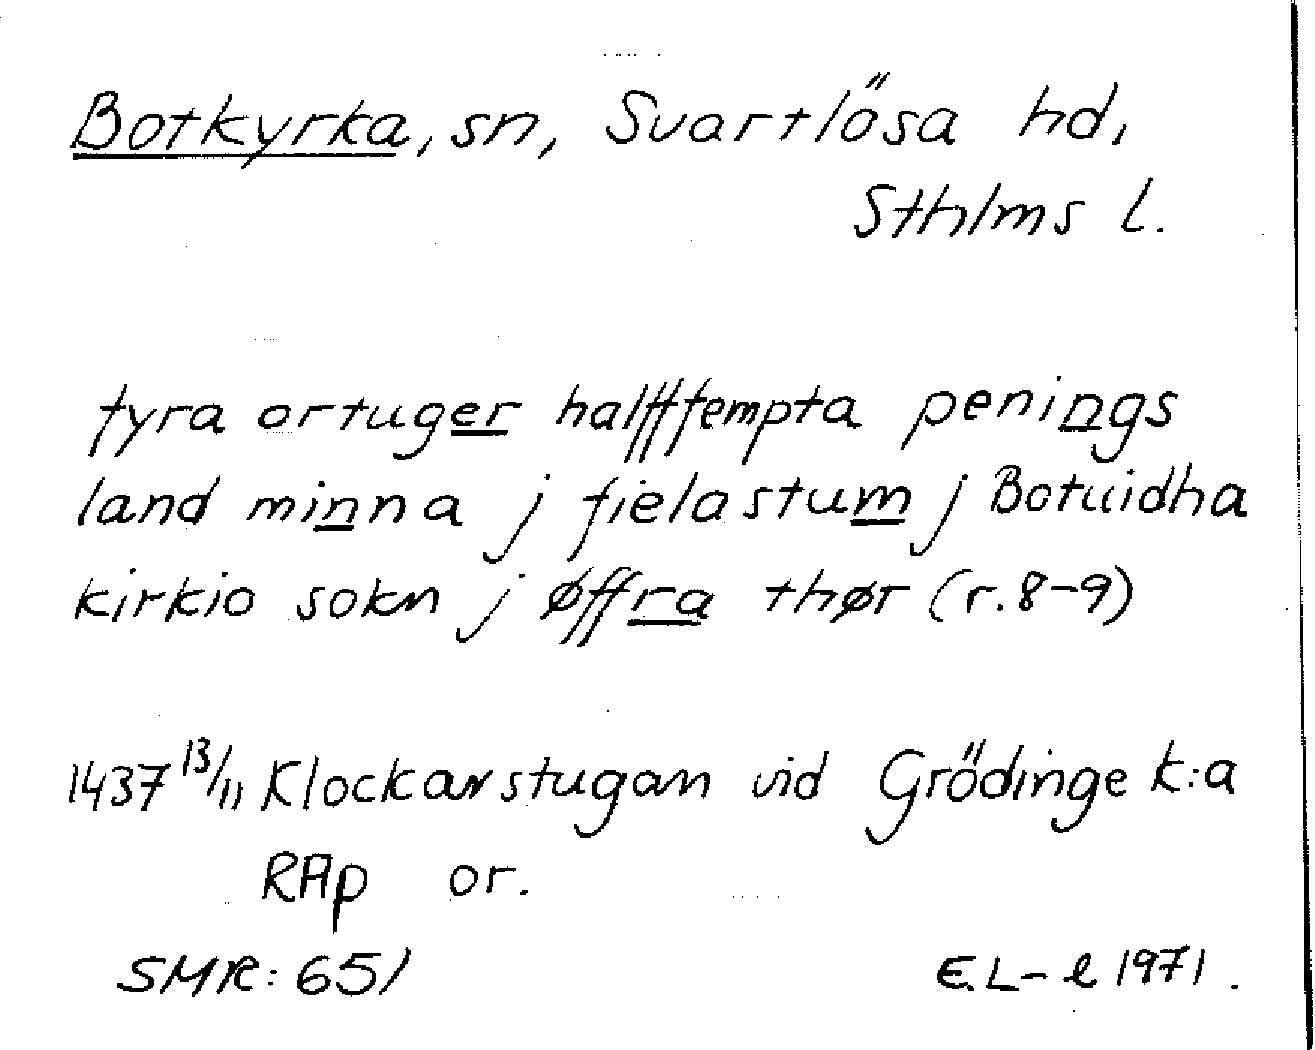 Botkyrka, sn, Svartlösa hd,
Sthlms l.
fyra ortuger halfffempta penings
land minna j fielastum j Botuidha
kirkio sokn j øffra thør (r. 8-9)
1437 13/11 Klockarstugan vid Grödinge k:a
RAp or.
SMR: 651
E.L-l 1971.